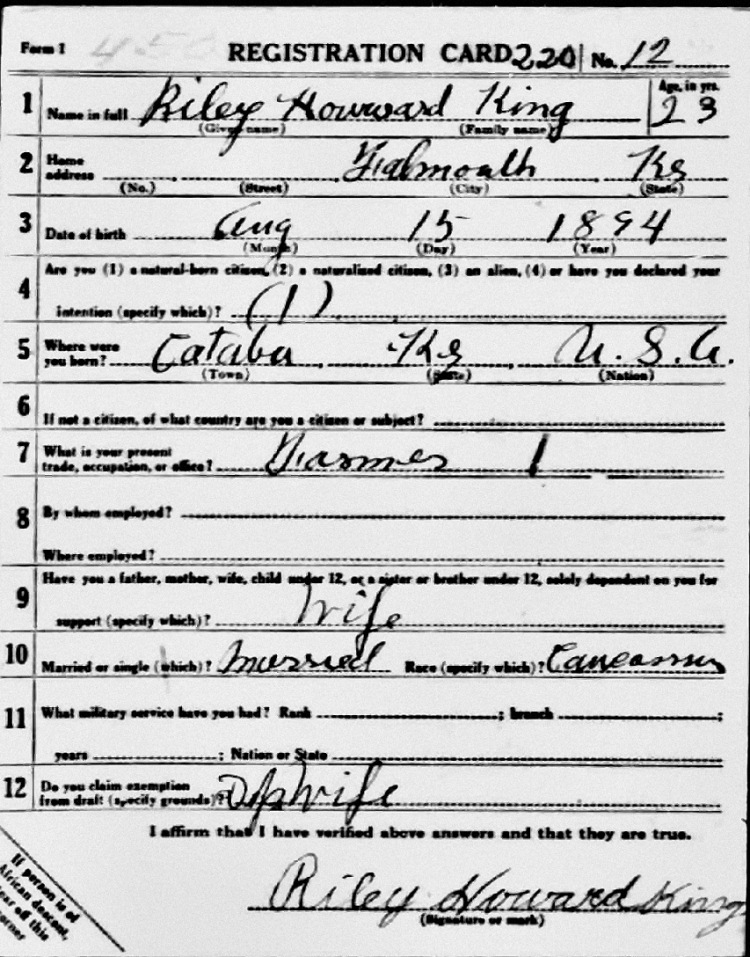 Form 1 450 REGISTRATION CARD 220 No. 12
1 Name in full Riley Howward King Age, in yrs. 23
(Given name) (Family name)
2 Home address Fialmoalh Ks
(No.) (Street) (City) (State)
3 Date of birth Aug 15 1894
(Month) (Day) (Year)
4 Are you (1) a natural-born citizen, (2) a naturalized citizen, (3) an alien, (4) or have you declared your
intention (specify which)? (1)
5 Where were you born? Cataba Ks U. S. A.
(Town) (State) (Nation)
6 If not a citizen, of what country are you a citizen or subject?
7 What is your present trade, occupation, or office? Farmer 1
8 By whom employed?
Where employed?
9 Have you a father, mother, wife, child under 12, or a sister or brother under 12, solely dependent on you for
support (specify which)? Wife
10 Married or single (which)? Married Race (specify which)? Caucasian
11 What military service have you had? Rank ; branch ;
years ; Nation or State
12 Do you claim exemption from draft (specify grounds)? Dep Wife
I affirm that I have verified above answers and that they are true.
Riley Howard King
(Signature or mark)
If person is of
African descent,
tear off this
corner